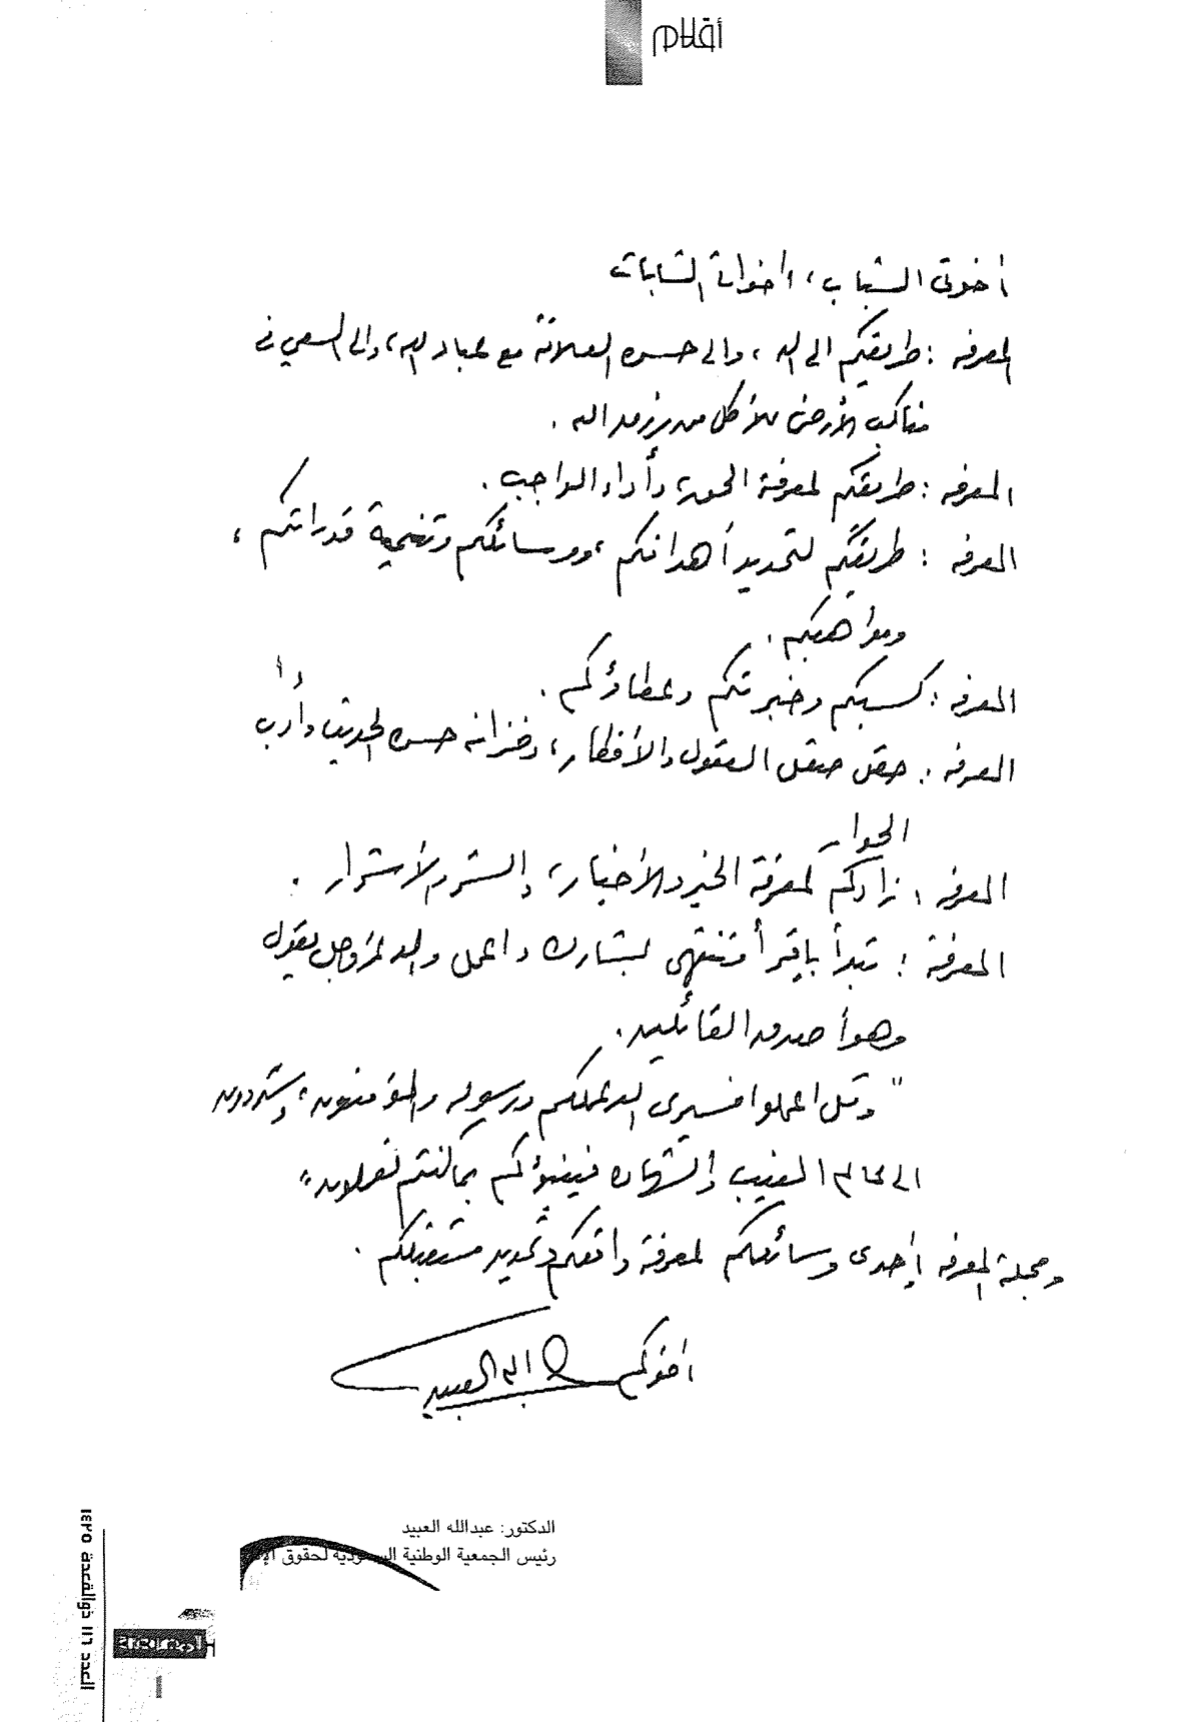 أقلام
أخوتي الشباب، أخواتي الشابات
المعرفه : طريقكم الى الله ، والى حسن العلاقة مع عباد الله، والى السعي في
مناكب الأرض للأكل من رزق الله .
المعرفه : طريقكم لمعرفة الحق، وأداء الواجب .
المعرفه : طريقكم لتحديد أهدافكم ، ووسائلكم وتنمية قدراتكم ،
ومواهبكم .
المعرفه : كسبكم وخبرتكم وعطاؤكم .
المعرفه : حقل صقل العقول والأفكار، وخزانه حسن الحديث وأدب
الحوار
المعرفه : زادكم لمعرفة الخير والأخيار ، والشر والأشرار .
المعرفة : تبدأ باقرأ وتنتهي بشارك واعمل والله عز وجل يقول
وهو أصدق القائلين .
" وقل اعملوا فسيرى الله عملكم ورسوله والمؤمنون ، وستردون
الى عالم الغيب والشهاده فينبؤكم بما كنتم تعملون "
ومجلة المعرفه إحدى وسائلكم لمعرفة واقعكم وتحديد مستقبلكم .
أخوكم عبدالله العبيد
الدكتور: عبدالله العبيد
رئيس الجمعية الوطنية السعودية لحقوق الإ
العدد ١١٦ ذوالقعدة ١٤٢٥
المعرفة